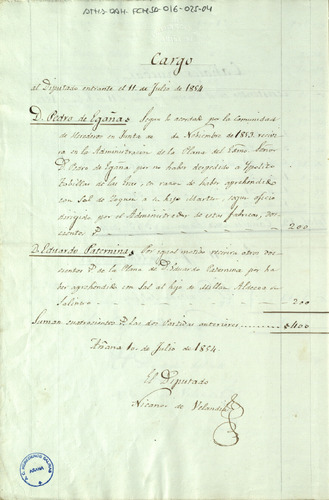 ATHS-DAH-FCHSA-016-025-04
Cargo
al Diputado entrante el 11 de Julio de 1854
D. Pedro de Egaña. Segun lo acordado por la Comunidad
de Herederos en Junta de de Noviembre de 1853 recivi-
ra en la Administracion de la Plana del Exmo Señor
D. Pedro de Egaña por no haber despedido a Ypolito
de las Eras, en razon de haber aprehendido
con Sal de su hijo Martin, segun oficio
dirigido por el Administrador de estas fabricas, dos-
cientos r.s 200
D. Eduardo Paternina. Por igual motivo recivira otros dos-
cientos r.s de la Plana de D. Eduardo Paternina por ha-
ber aprehendido con Sal al hijo de Millan en
Salinas 200
Suman cuatrocientos r.s las dos Partidas anteriores 400
Añana 1º de Julio de 1854.
El Diputado
Nicanor de Velandia
A.C. HEREDEROS SALINAS
AÑANA